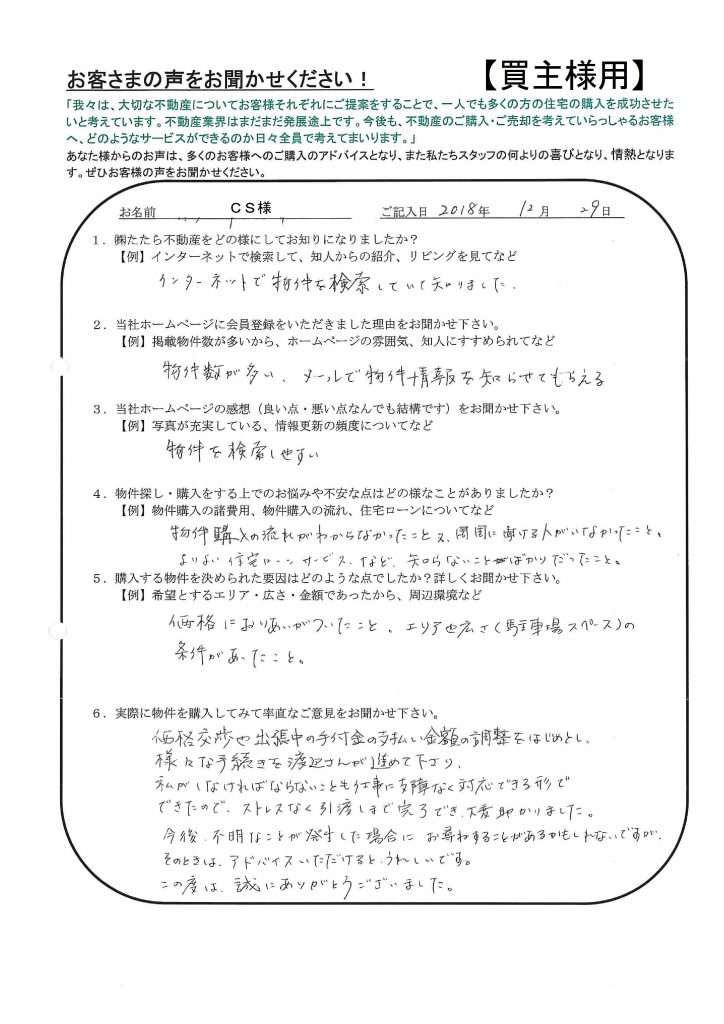 お客さまの声をお聞かせください！
【買主様用】
「我々は、大切な不動産についてお客様それぞれにご提案をすることで、一人でも多くの方の住宅の購入を成功させた
いと考えています。不動産業界はまだまだ発展途上です。今後も、不動産のご購入・ご売却を考えていらっしゃるお客様
へ、どのようなサービスができるのか日々全員で考えてまいります。」
あなた様からのお声は、多くのお客様へのご購入のアドバイスとなり、また私たちスタッフの何よりの喜びとなり、情熱となりま
す。ぜひお客様の声をお聞かせください。
お名前 ＣＳ様 ご記入日 2018年 12月 29日
１．㈱たたら不動産をどの様にしてお知りになりましたか？
【例】インターネットで検索して、知人からの紹介、リビングを見てなど
インターネットで物件を検索していて知りました．
２．当社ホームページに会員登録をいただきました理由をお聞かせ下さい。
【例】掲載物件数が多いから、ホームページの雰囲気、知人にすすめられてなど
物件数が多い、メールで物件情報を知らせてもらえる
３．当社ホームページの感想（良い点・悪い点なんでも結構です）をお聞かせ下さい。
【例】写真が充実している、情報更新の頻度についてなど
物件を検索しやすい
４．物件探し・購入をする上でのお悩みや不安な点はどの様なことがありましたか？
【例】物件購入の諸費用、物件購入の流れ、住宅ローンについてなど
物件購入の流れがわからなかったこと又、周囲に聞ける人がいなかったこと。
よりよい住宅ローンサービス、など、知らないことばかりだったこと。
５．購入する物件を決められた要因はどのような点でしたか？詳しくお聞かせ下さい。
【例】希望とするエリア・広さ・金額であったから、周辺環境など
価格におりあいがついたこと、エリアや広さ（駐車場スペース）の
条件があったこと。
６．実際に物件を購入してみて率直なご意見をお聞かせ下さい。
価格交渉や出張中の手付金の支払い金額の調整をはじめとし、
様々な手続きを渡辺さんが進めて下さり、
私がしなければならないことも仕事に支障なく対応できる形で
できたので、ストレスなく引渡しまで完了でき、大変助かりました。
今後、不明なことが発生した場合に お尋ねすることがあるかもしれないですが、
そのときは、アドバイスいただけると、うれしいです。
この度は、誠にありがとうございました。